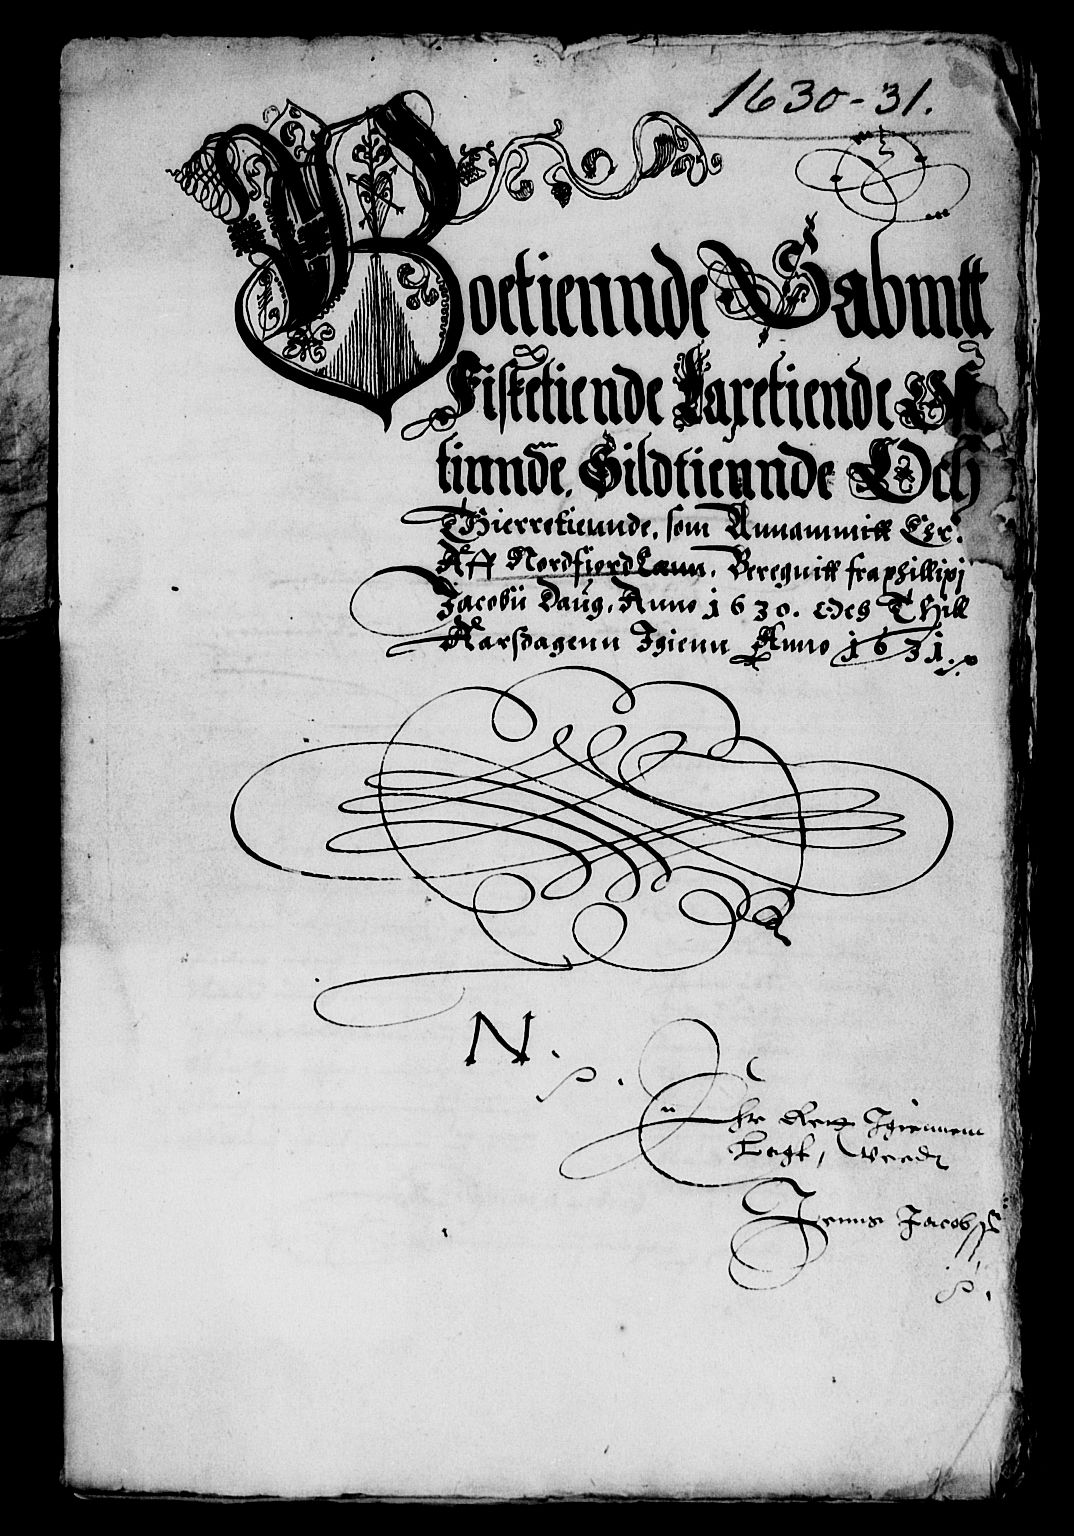 1630-31.
Boetiennde Sabmtt
Fisketiende Laxetiende
tinnde. Sildtiennde Och
Thierretiunde, som Annammitt Ehr.
Aff Nordfiordlann. Beregnitt fra phillipj
Jacobii Daug. Anno 1630. Och Thill
Aarsdagenn Igienn Anno 1631.
N.
Igiennem
Lagt, Weed
Jenns Jacobss